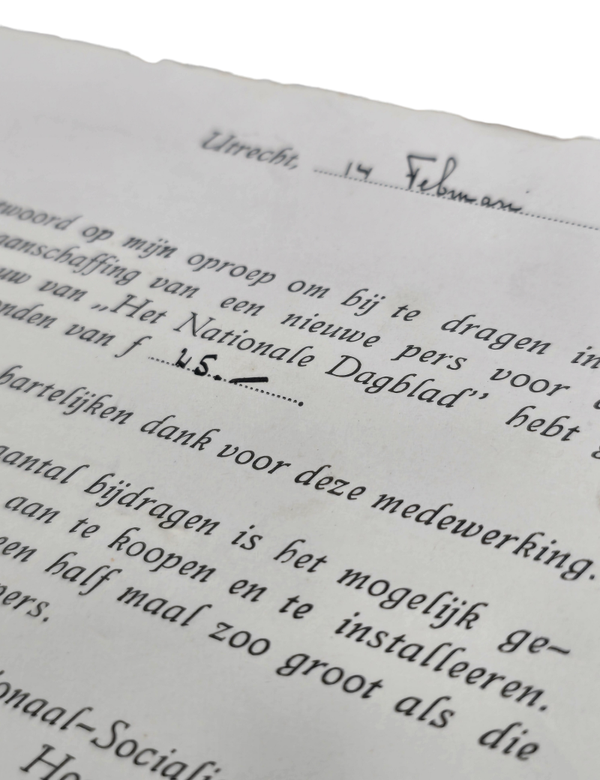 Utrecht, 14 Februari
woord op mijn oproep om bij te dragen in
aanschaffing van een nieuwe pers voor
uw van „Het Nationale Dagblad" hebt
nden van f 25.—.
hartelijken dank voor deze medewerking.
aantal bijdragen is het mogelijk ge-
aan te koopen en te installeeren.
een half maal zoo groot als die
pers.
onaal-Sociali
Ho